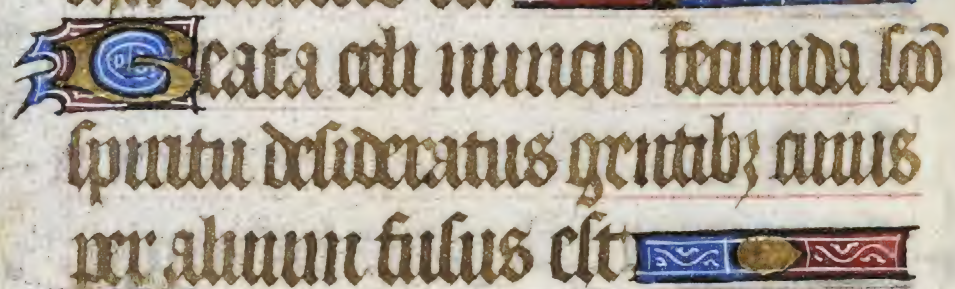 Beata celi nuncio fecunda sc̄o
spiritu desideratus gentibꝫ cuius
per aluum fusus est